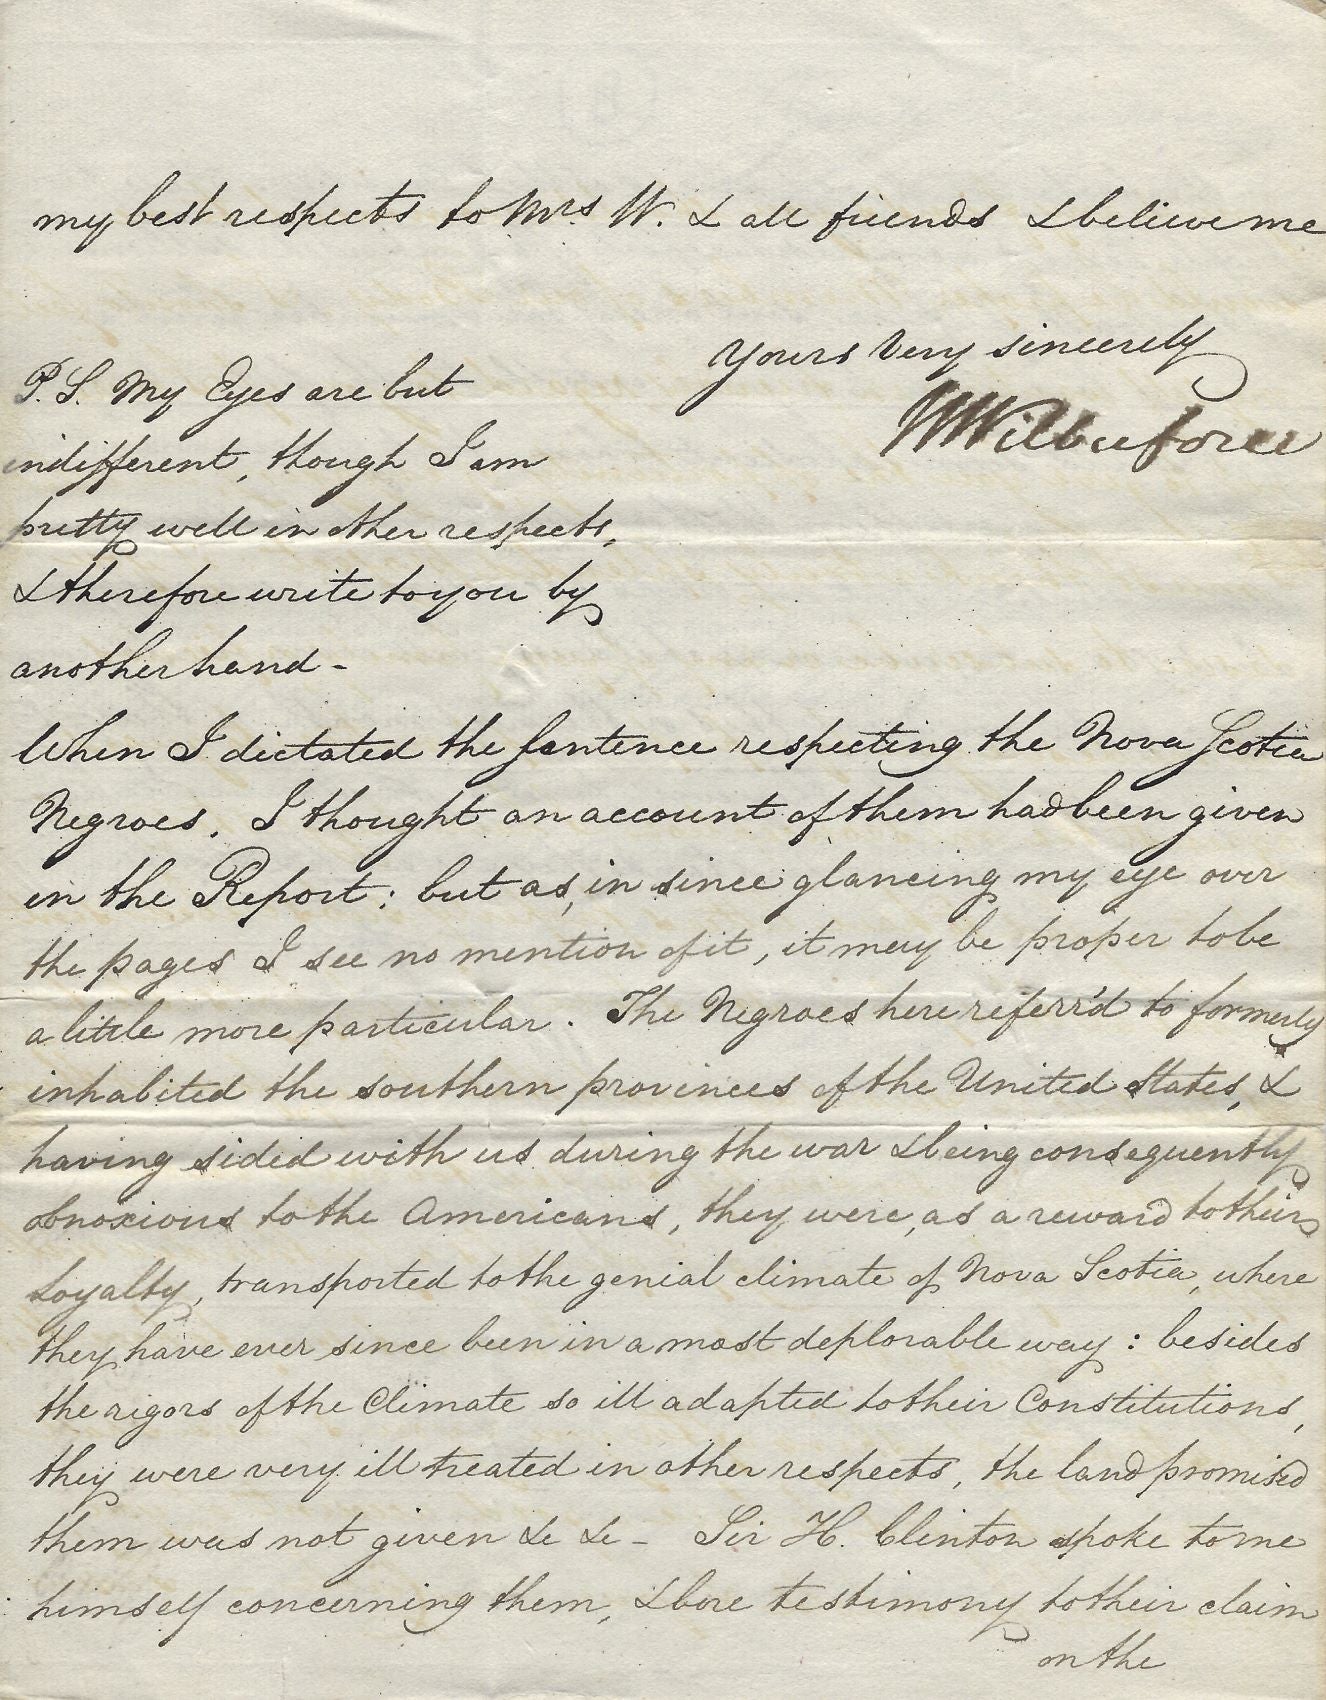 my best respects to Mrs W. & all friends & believe me
Yours very sincerely
W Wilberforce
P.S. My Eyes are but
indifferent, though I am
pretty well in other respects,
& therefore write to you by
another hand -
When I dictated the sentence respecting the Nova Scotia
Negroes, I thought an account of them had been given
in the Report; but as, in since glancing my eye over
the pages I see no mention of it, it may be proper to be
a little more particular. The Negroes here referr'd to formerly
inhabited the southern provinces of the United States, &
having sided with us during the war & being consequently
obnoxious to the Americans, they were, as a reward to their
Loyalty, transported to the genial climate of Nova Scotia, where
they have ever since been in a most deplorable way: besides
the rigors of the Climate so ill adapted to their Constitutions,
they were very ill treated in other respects, the land promised
them was not given &c &c - Sir H. Clinton spoke to me
himself concerning them, & bore testimony to their claim
on the